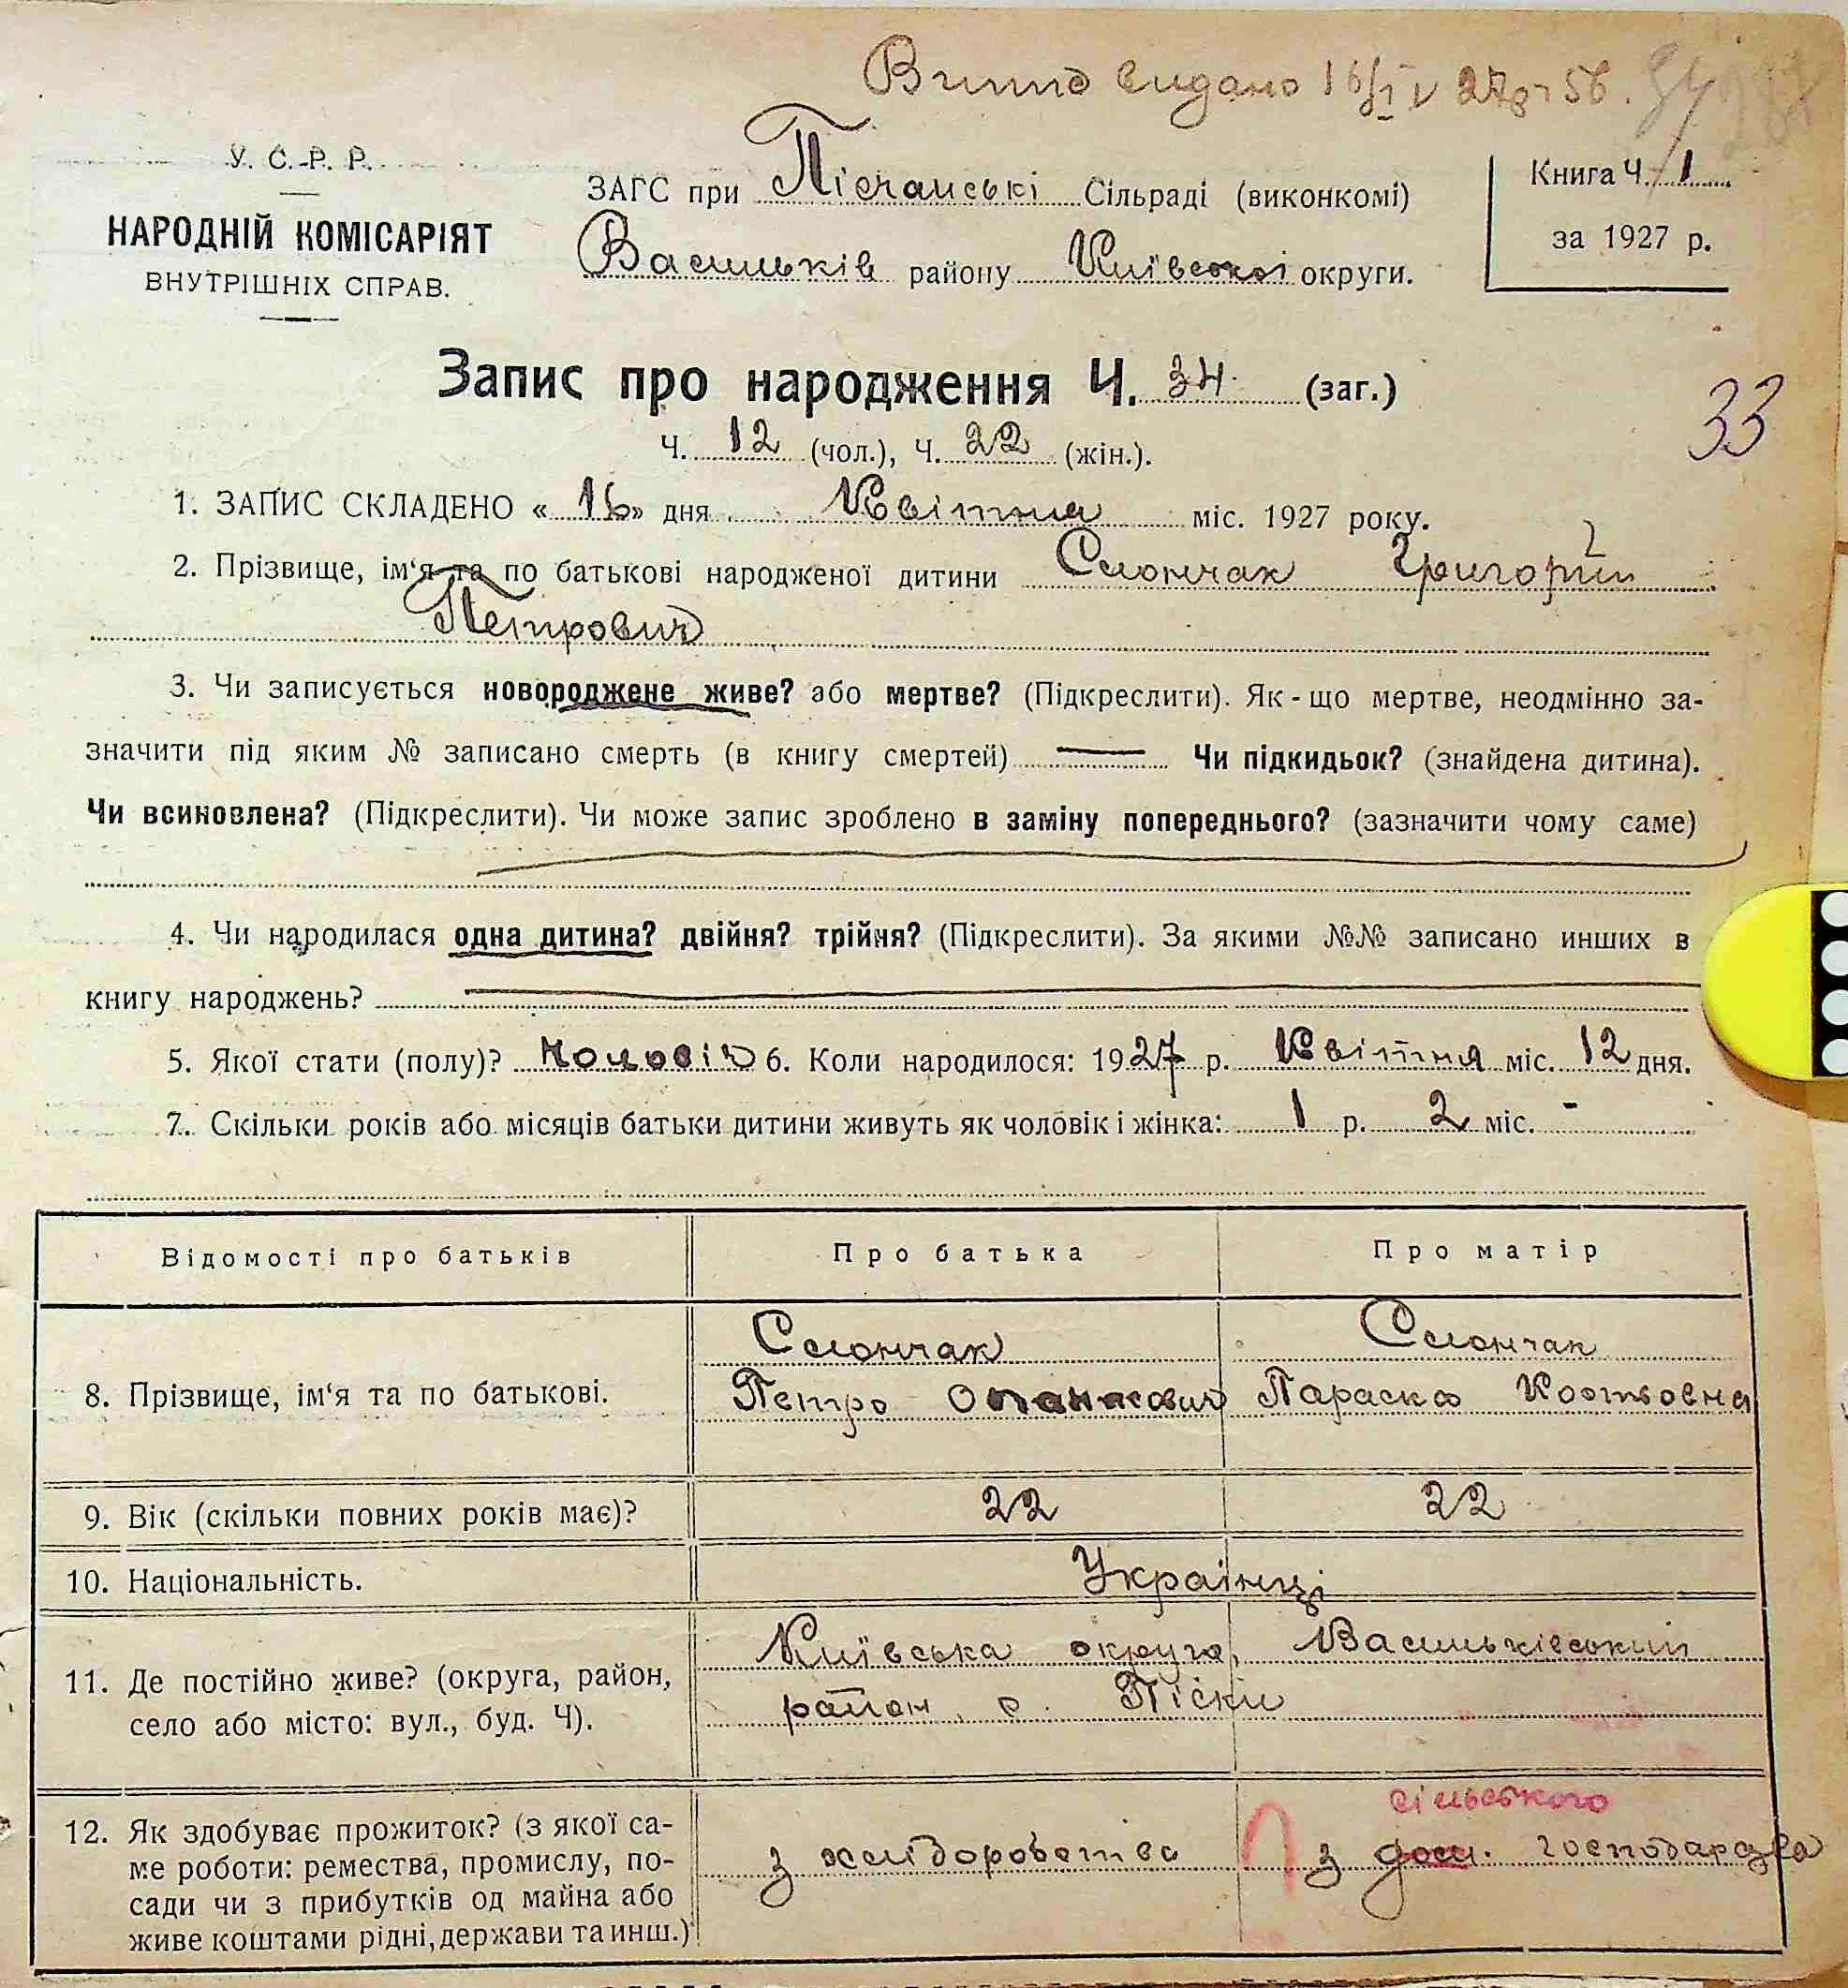 Витяг видано 16/IV 27 р 56.
У. С. Р. Р.
НАРОДНІЙ КОМІСАРІЯТ
ВНУТРІШНІХ СПРАВ.
ЗАГС при Пісчанські Сільраді (виконкомі)
Васильків району Київської округи.
Книга Ч. 1
за 1927 р.
Запис про народження Ч. 34 (заг.)
33
Ч. 12 (чол.), Ч. 22 (жін.).
1. ЗАПИС СКЛАДЕНО «16» дня Квітня міс. 1927 року.
2. Прізвище, ім'я та по батькові народженої дитини Слончак Григорій
Петрович
3. Чи записується новороджене живе? або мертве? (Підкреслити). Як-що мертве, неодмінно за-
значити під яким № записано смерть (в книгу смертей) — Чи підкидьок? (знайдена дитина).
Чи всиновлена? (Підкреслити). Чи може запис зроблено в заміну попереднього? (зазначити чому саме)
4. Чи народилася одна дитина? двійня? трійня? (Підкреслити). За якими №№ записано инших в
книгу народжень?
5. Якої стати (полу)? Чоловіч 6. Коли народилося: 1927 р. Квітня міс. 12 дня.
7. Скільки років або місяців батьки дитини живуть як чоловік і жінка: 1 р. 2 міс. -
Відомості про батьків Про батька Про матір
Слончак Слончак
8. Прізвище, ім'я та по батькові. Петро Опанасович Параска Костьовна
9. Вік (скільки повних років має)? 22 22
10. Національність. Українці
Київська округа, Васильківський
11. Де постійно живе? (округа, район, район, с. Піски
село або місто: вул., буд. Ч).
сільського
12. Як здобуває прожиток? (з якої са-
ме роботи: ремества, промислу, по- з хліборобства з дом. господарства
сади чи з прибутків од майна або
живе коштами рідні, держави та инш.)